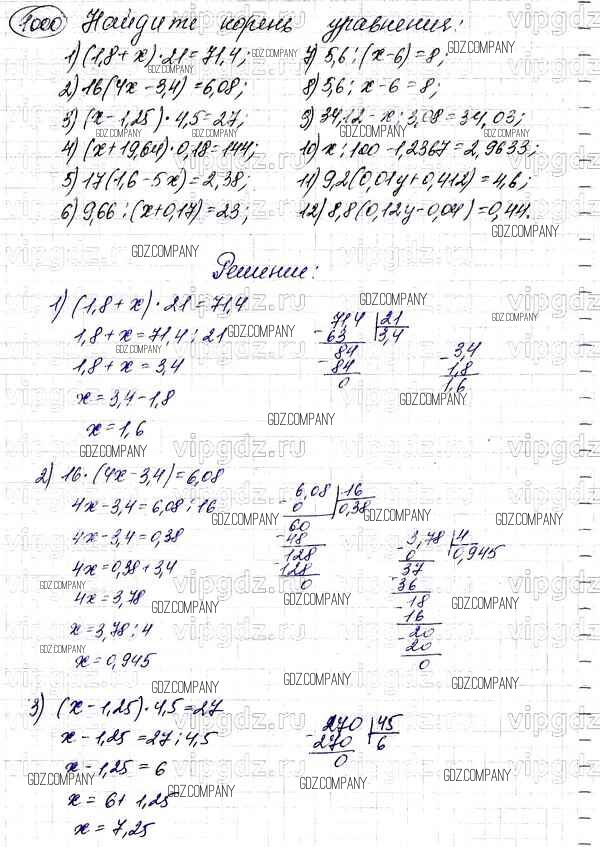 1000 Найдите корень уравнения:
1) (1,8 + x) · 21 = 71,4;
2) 16(4x - 3,4) = 6,08;
3) (x - 1,25) · 4,5 = 27;
4) (x + 19,64) · 0,18 = 144;
5) 17(1,6 - 5x) = 2,38;
6) 9,66 : (x + 0,17) = 23;
7) 5,6 : (x - 6) = 8;
8) 5,6 : x - 6 = 8;
9) 34,12 - x : 3,08 = 34,03;
10) x : 100 - 1,2367 = 2,9633;
11) 9,2(0,01y + 0,412) = 4,6;
12) 8,8(0,12y - 0,04) = 0,44.
Решение:
1) (1,8 + x) · 21 = 71,4
1,8 + x = 71,4 : 21
1,8 + x = 3,4
x = 3,4 - 1,8
x = 1,6
71,4 21
- 63 3,4
84
- 84
0
- 3,4
1,8
1,6
2) 16 · (4x - 3,4) = 6,08
4x - 3,4 = 6,08 : 16
4x - 3,4 = 0,38
4x = 0,38 + 3,4
4x = 3,78
x = 3,78 : 4
x = 0,945
6,08 16
- 0 0,38
60
- 48
128
- 128
0
3,78 4
- 0 0,945
37
- 36
18
- 16
20
- 20
0
3) (x - 1,25) · 4,5 = 27
x - 1,25 = 27 : 4,5
x - 1,25 = 6
x = 6 + 1,25
x = 7,25
270 45
- 270 6
0
GDZ.COMPANY
vipgdz.ru